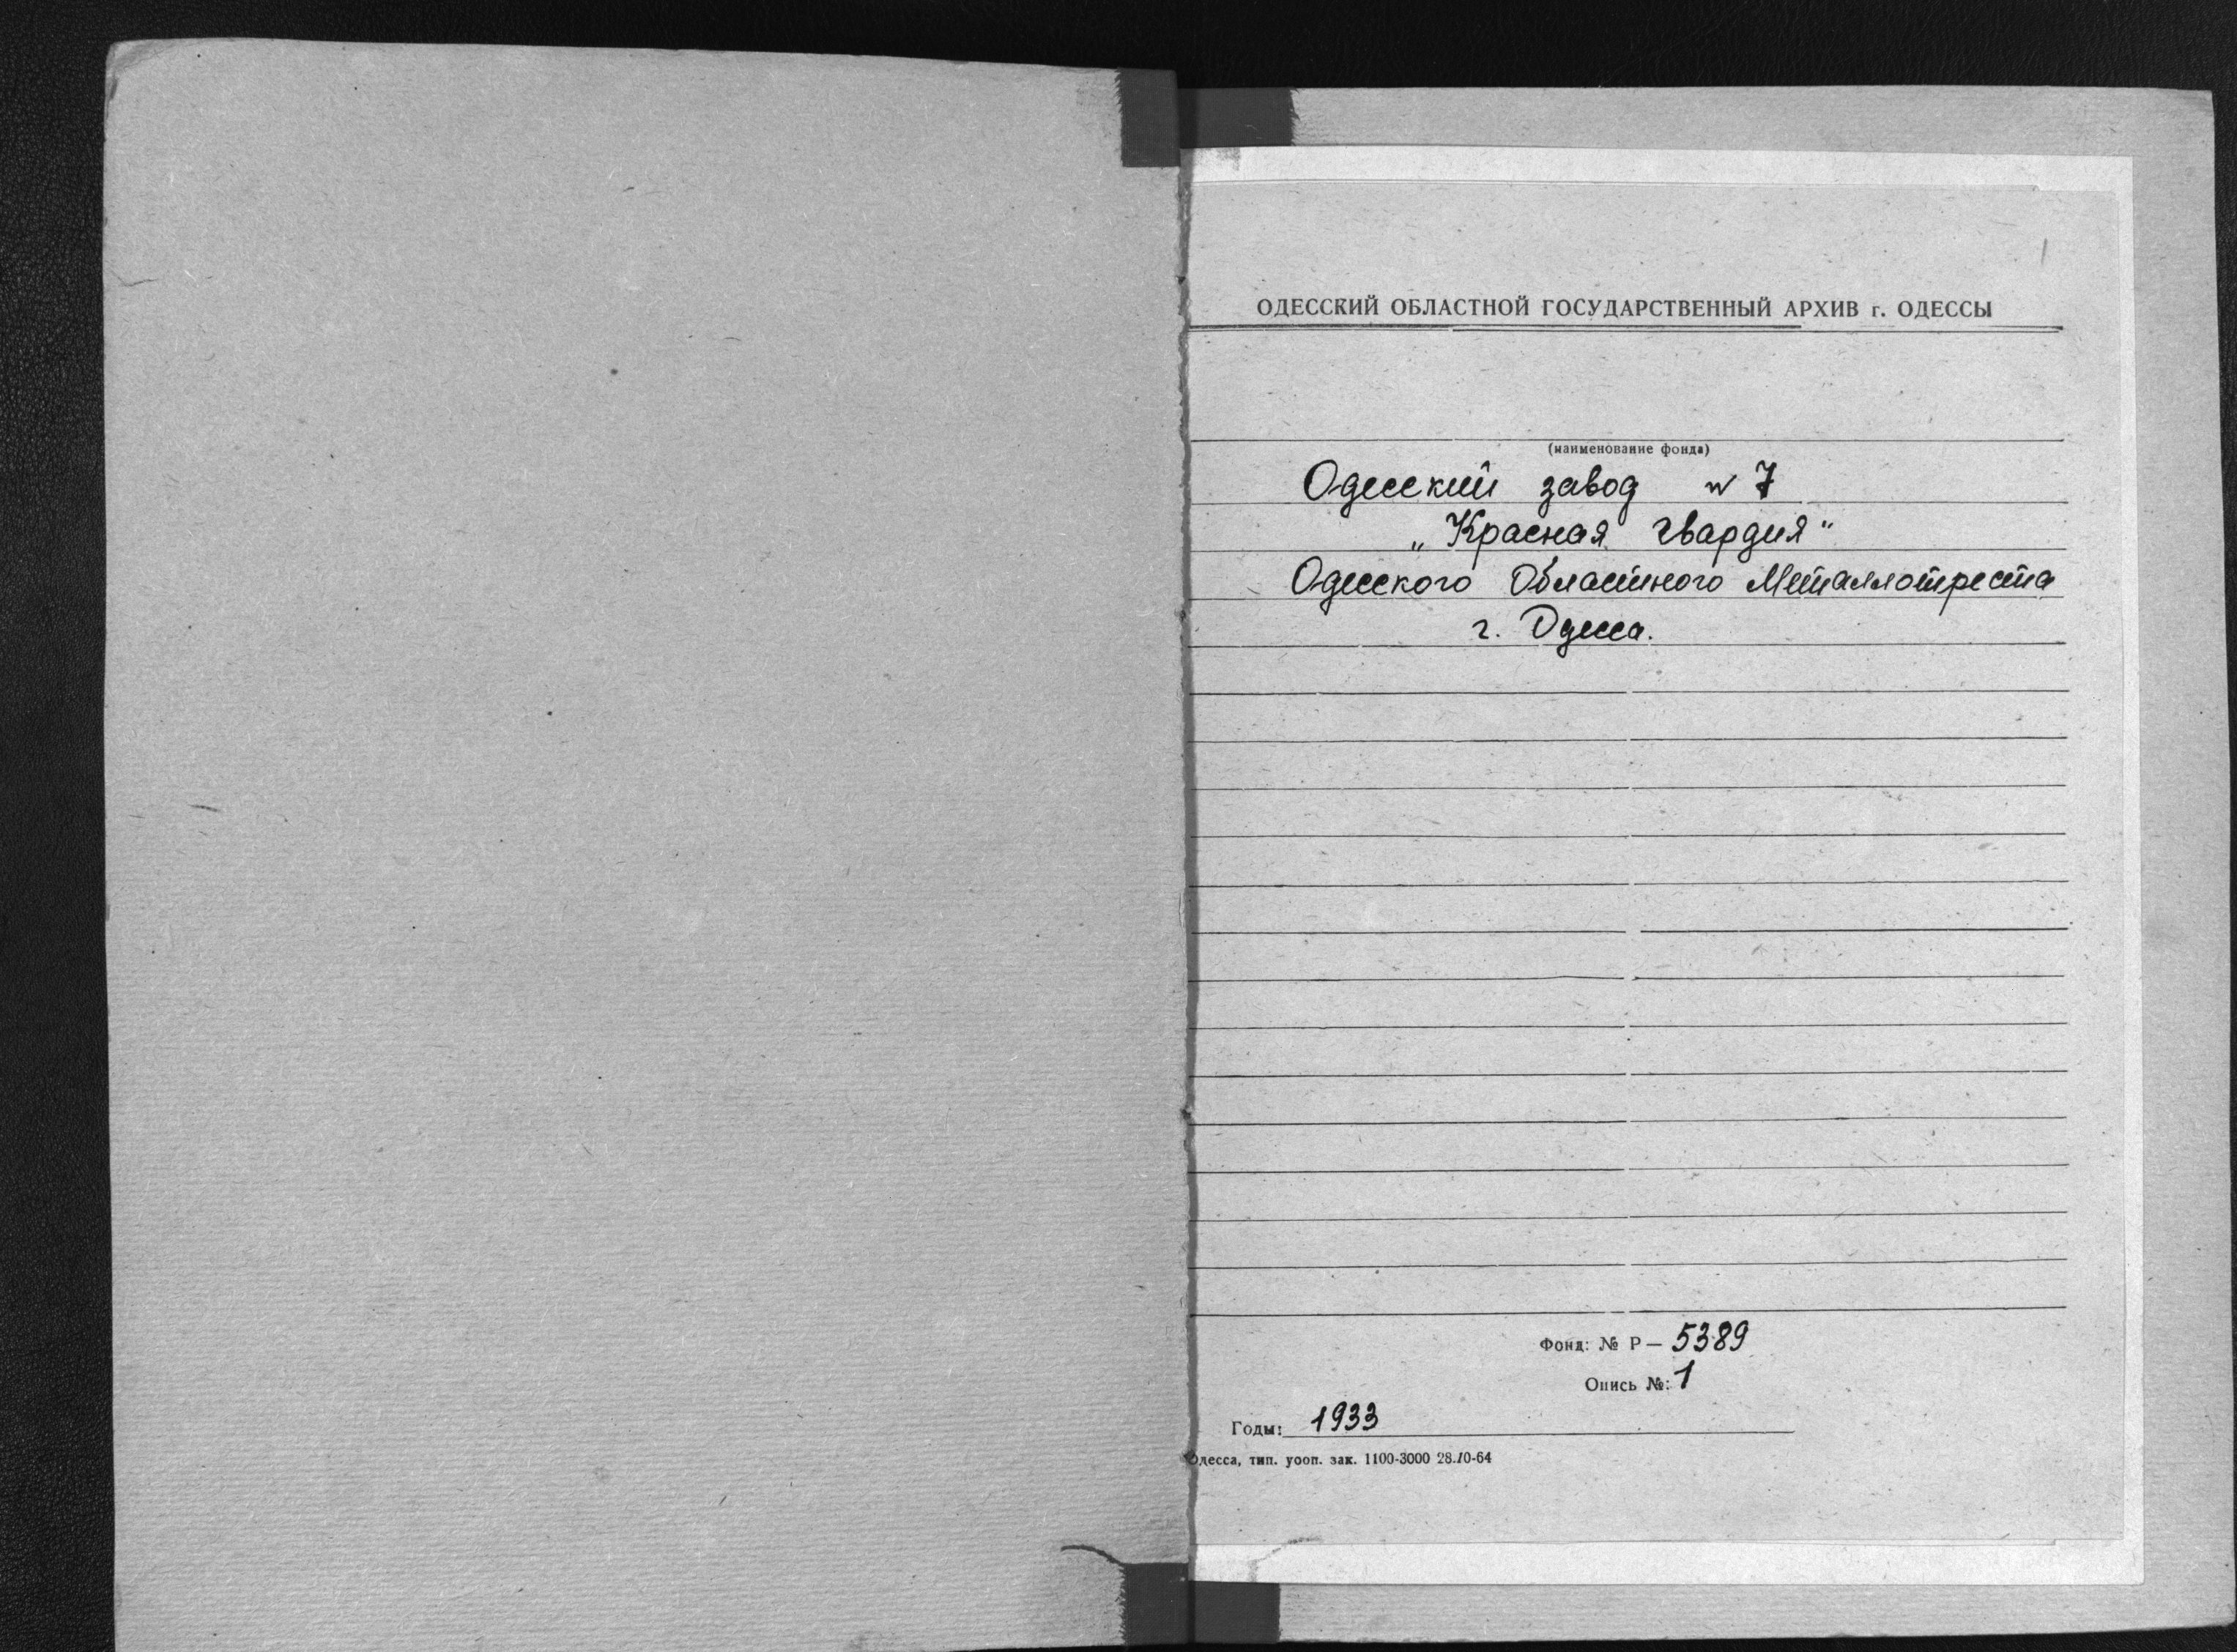 ОДЕССКИЙ ОБЛАСТНОЙ ГОСУДАРСТВЕННЫЙ АРХИВ г. ОДЕССЫ
(наименование фонда)
Одесский завод № 7
„Красная гвардия"
Одесского Областного Металлотреста
г. Одесса.
Фонд: № Р — 5389
Опись №: 1
Годы: 1933
Одесса, тип. уооп. зак. 1100-3000 28.10-64